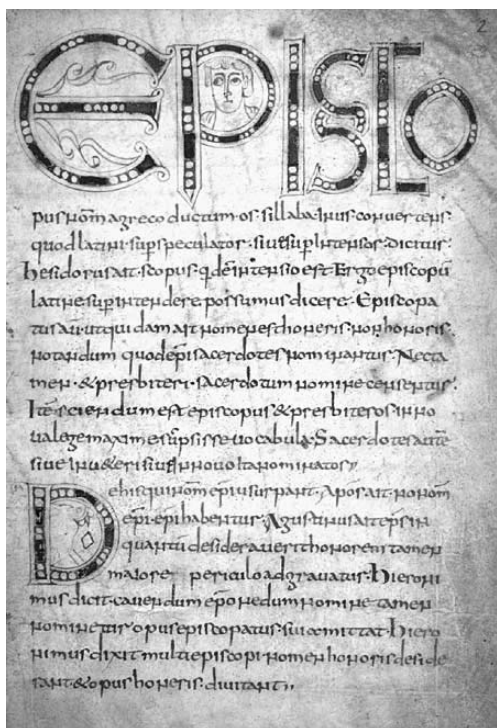 2
EPISCO
pus nom̄ a greco ductum os sillaba. in us convertens.
quod latini suꝑspeculator. sive suꝑintensor. dicitur:
hesidorus ait. scopus. q̄dē intensio est. Ergo episcopū
latine suꝑintendere possumus dicere. Episcopa
tus aūt ut quidam ait nomen est honeris. non honoris.
notandum quod ep̄i sacerdotes nominantur. Nec ta
men. & presbiteri. sacerdotum nomine censentur.
Itē sciendum est episcopus & presbiteros in no
va lege maxime sūpsisse vocabula. Sacerdotes autē
sive in u&eri sive in novo ita nominatos
De his qui nom̄ ep̄i usurpant. Apōs ait. non om̄
ep̄i. ep̄i habentur. Agustinus ait ep̄s in
quantū desideraverit honorem tamen
maiore periculo adgravatur. Hieroni
mus dicit. cavendum ep̄o ne dum nomine tamen
nominetur opus episcopatus. sui amittat. Hiero
nimus dixit multi episcopi. nomen honoris deside
rant. & opus honeris. divitant